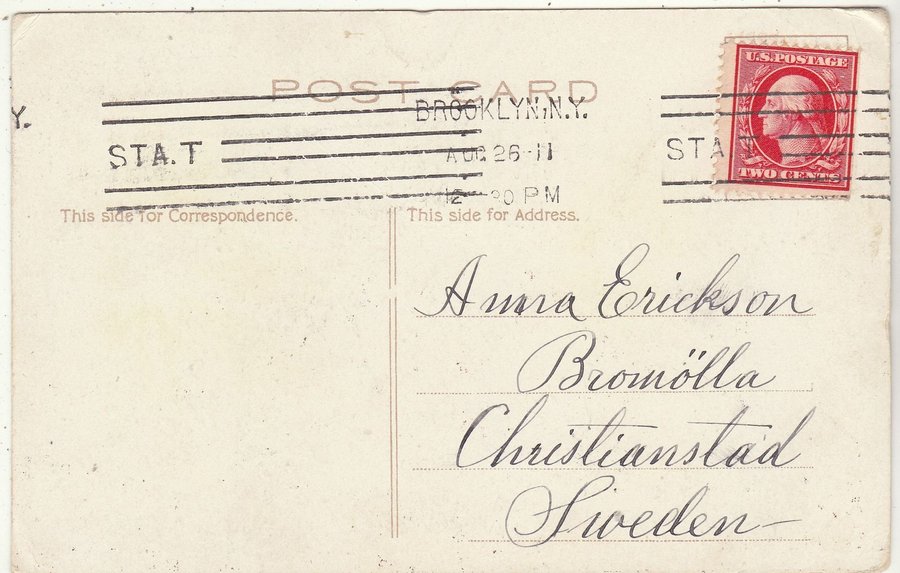 POST CARD
Y.
BROOKLYN, N.Y.
STA. T
AUG 26 - 11
12 30 PM
STA T
U.S. POSTAGE
TWO CENTS
This side for Correspondence.
This side for Address.
Anna Erickson
Bromölla
Christianstad
Sweden